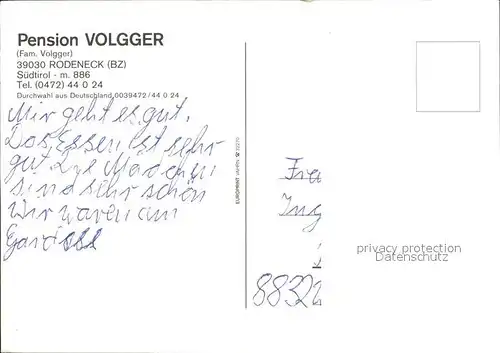 Pension VOLGGER
(Fam. Volgger)
39030 RODENECK (BZ)
Südtirol - m. 886
Tel. (0472) 44 0 24
Durchwahl aus Deutschland 0039472/44 0 24
Mir geht es gut.
Das Essen ist sehr
gut Die Mädchen
sind sehr schön
Wir waren am
EUROPRINT VAHRN
Fra
Ing
privacy protection
Datenschutz
8832